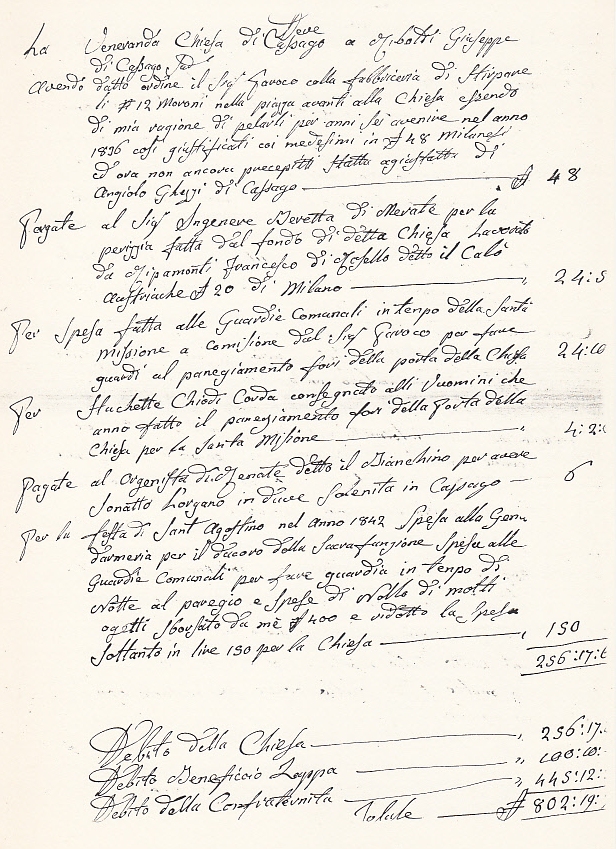 La Veneranda Chiesa di Cassago Deve a Ribotti Giuseppe
di Cassago
Avendo datto ordine il Sig.r Paroco colla Fabbriceria di Stirpare
li # 12 Moroni nella piazza avanti alla Chiesa essendo
di mia ragione di pelarli per anni sei avenire nel anno
1836 così giustificati coi medesimi in £ 48 Milanesi
d'ora non ancora precepitti statta agiustatta di
Angiolo Ghezzi di Cassago — £ 48
Pagate al Sig.r Ingenere Beretta di Merate per la
perizzia fatta dal fondo di detta Chiesa Lavorato
da Ripamonti Francesco di Rosello detto il Calò
Austriache £ 20 di Milano — " 24:5
Per Spesa fatta alle Guardie Comunali in tenpo della Santa
Missione a comisione dal Sig.r Paroco per fare
guardi al panegiamento fori della porta della Chiesa 24:10
Per Stachette Chiodi Corda consegnato alli Vuomini che
anno fatto il panegiamento fori della Porta della
Chiesa per la Santa Misione — " 4:2:
Pagate al Orgenista di Renate detto il Bianchino per avere
Sonatto Lorgano in due Solenita in Cassago — 6
Per la festa di Sant Agostino nel Anno 1842 Spesa alla Gen
darmeria per il dacoro della Sacra fangione Spesa alle
Guardie Comunali per fare guardia in tenpo di
Notte al paregio e Spese di Nollo di molti
ogetti Sborsato da me £ 400 e ridotto la Spesa
Soltanto in lire 150 per la Chiesa — " 150
256:17:6
Debito della Chiesa — " 256:17.
Debito Beneficio Zappa — " 100:10:
Debito della Confraternita — " 445:12:
Totale — £ 802:19: